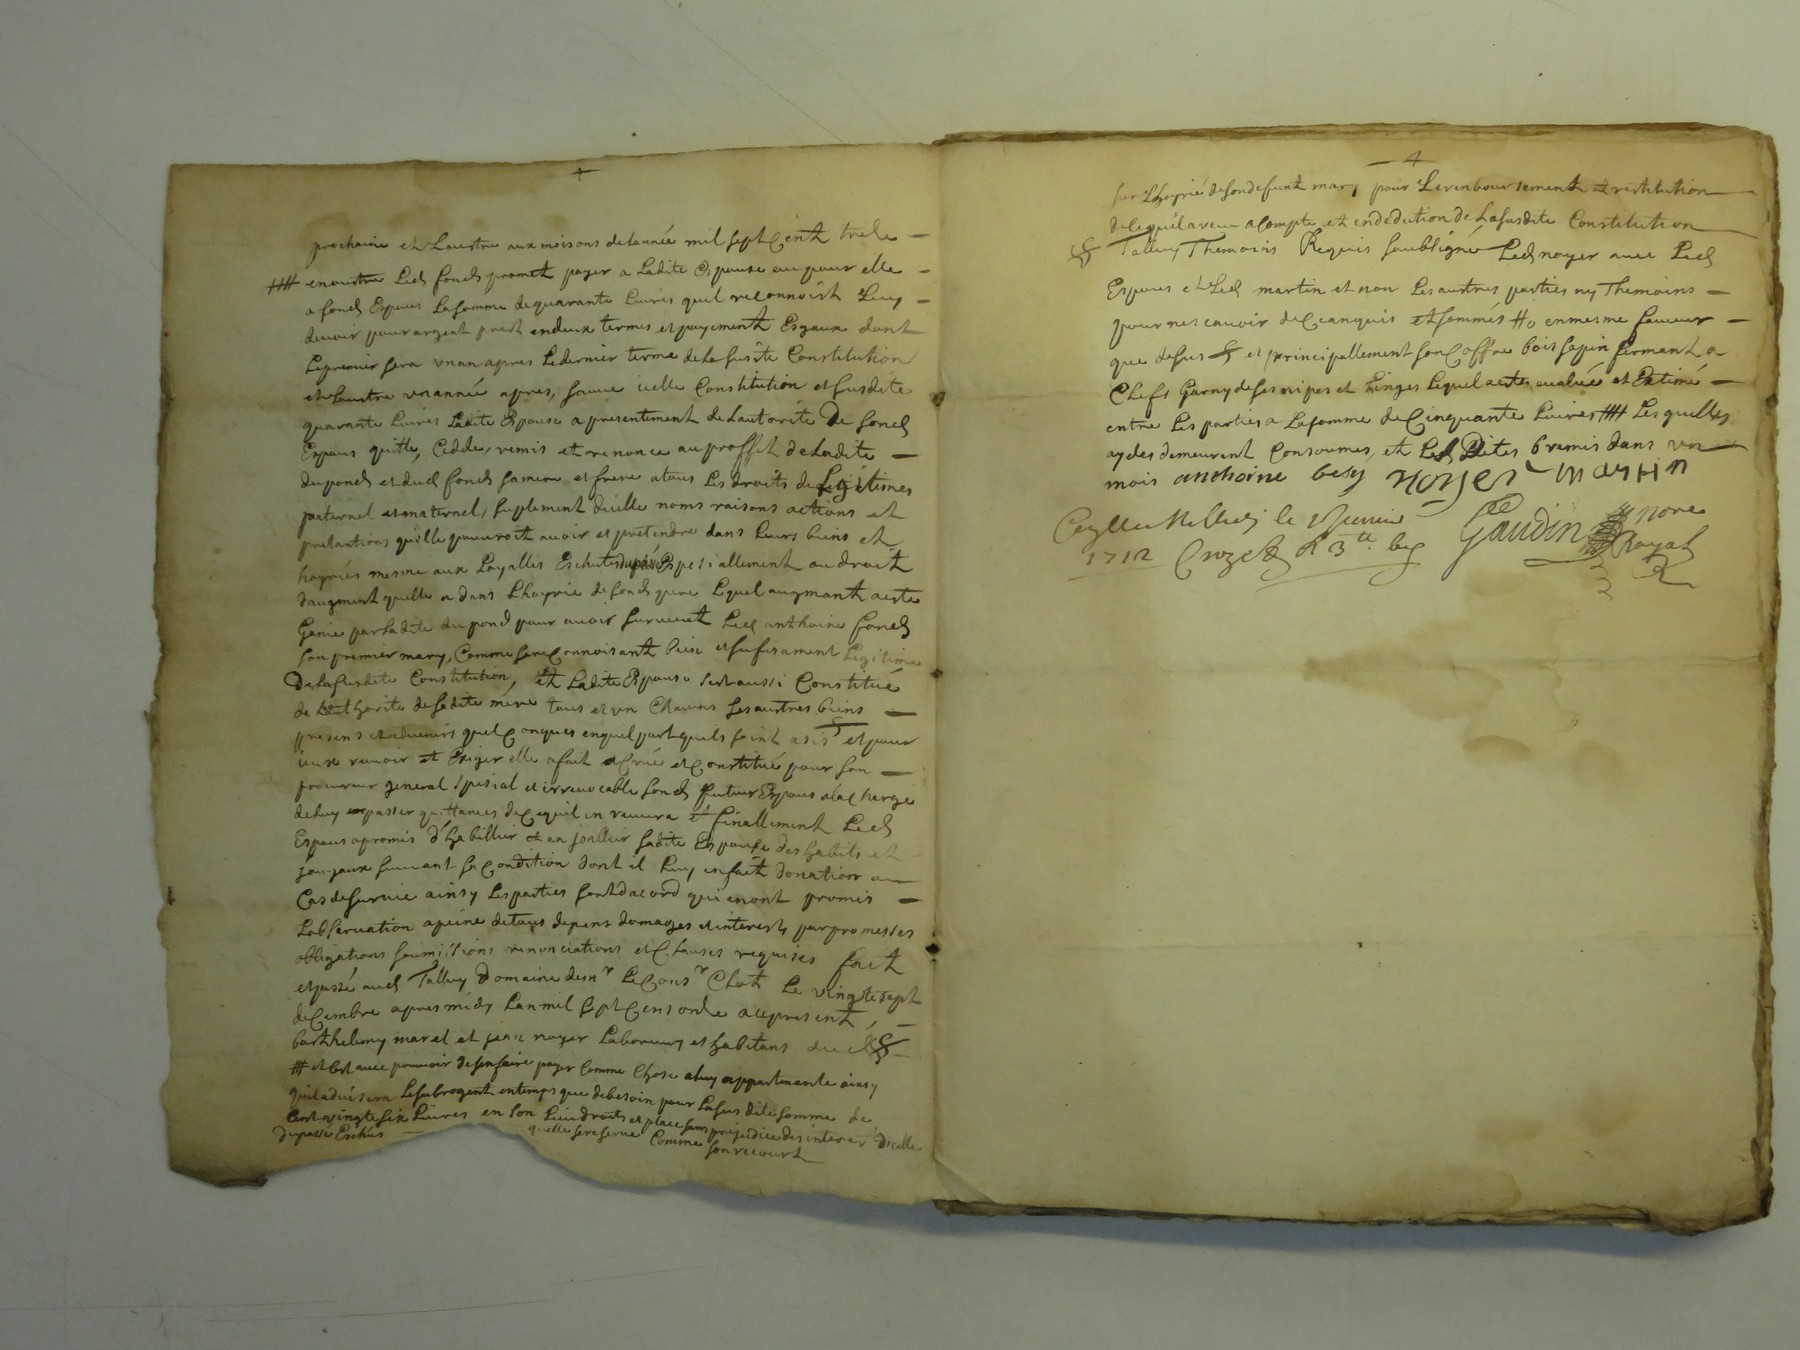 prochaine et Lauttre aux moisons delannée mil sept Cent treze
## enouttre Led fond promet payer a Ladite Espouse ou pour elle
a fond Espoux Lasomme de quarante Livres quil reconnoist Luy
devoir pour argent prest endeux termes et payement Esgaux dont
Lepremier sera unan apres Ledernier terme de La susdite Constitution
et Lauttre unannée apres, sauve icelle Constitution et susdite
quarante Livres Ladite Espouse apresentement deLautorité De fond
Espoux quitte, Cedde, remis et renonce auproffit deLadite
dupond et dud fond samere et frere atous Les droits de Légitimes
paternel et maternel, suplement dicelle noms raisons actions et
pretantions quelle pouvroit avoir et pretendre dans Leurs biens et
hoyries mesme aux Loyalles Eschutes Espesiallement au droit
daugment quelle a dans Lhoyrie de fond pere Lequel augmant aeste
Gagné parLadite dupond pour avoir survecut Led anthoine fond
son premier mary, Comme sereConnoisant bien et sufisament Legitimée
DeLasusdite Constitution, Et Ladite Espouse sest aussi Constitué
de Lauthorité desadite mere tous et un Chacuns ses auttres biens
presens etadvenirs quelConques enquel part quils soint asis et pour
iceux ravoir et Exiger elle afait et Créé etConstitué pour son
procureur general spesial et irrevocable fond futur Espoux alaCharge
deluy passer quittances deCequil en recevra Et finallement Led
Espoux apromis d'habillier et en joallier sadite Espouse des habits et
joujaux suivant saCondition dont il Luy enfait donation en
Cas de survie ainsy Lesparties sont dacord qui enont promis
Lobservation apeine detous depens domages et interests par promesses
obligations soumissions renonciations et Clauses requises fait
et passé aud Talluy Domaine desnr LeConsr Chot Le vingtesept
deCembre apres midy Lan mil sept Cens onze aupresent
barthelemy marel et jean noyer Laboureurs et habitans dud §
## et Cest avec pouvoir desenfaire payer Comme Chose aluy appartenante ainsy
quil advisera Lesubrogent entemps que debesoin pour Lasus dite somme de
Cent vingte six Livres en son Lieu droits et place sans prejudice des interest dicelle
dupassé Eschus quelle se reserve Comme son recourt
sur Lhoyrie desondefunt mary pour Lerenboursement et restitution
delcequil aveu acompte et endedution de Lasusdite Constitution
§ Talluy Themoins Requis soubsigné Led noyer avec Led
Espoux et Led martin et non Les auttres parties ny Themoins
pour nescavoir deCeanquis et sommes ## enmesme faveur
que desus § et principallement sonCoffre bois sapin fermant a
Clefs Garny desesnipes et Linges Lequel aeste evalué et Extimé
entre Lesparties a Lasomme deCinquante Livres ## Lesquelles
aydes demeurent Consoumes, et Led Dites bremis dans un
mois anthoine besy noyer martin
1712 Crozet R 3 tt
Gaudin nore
Royal